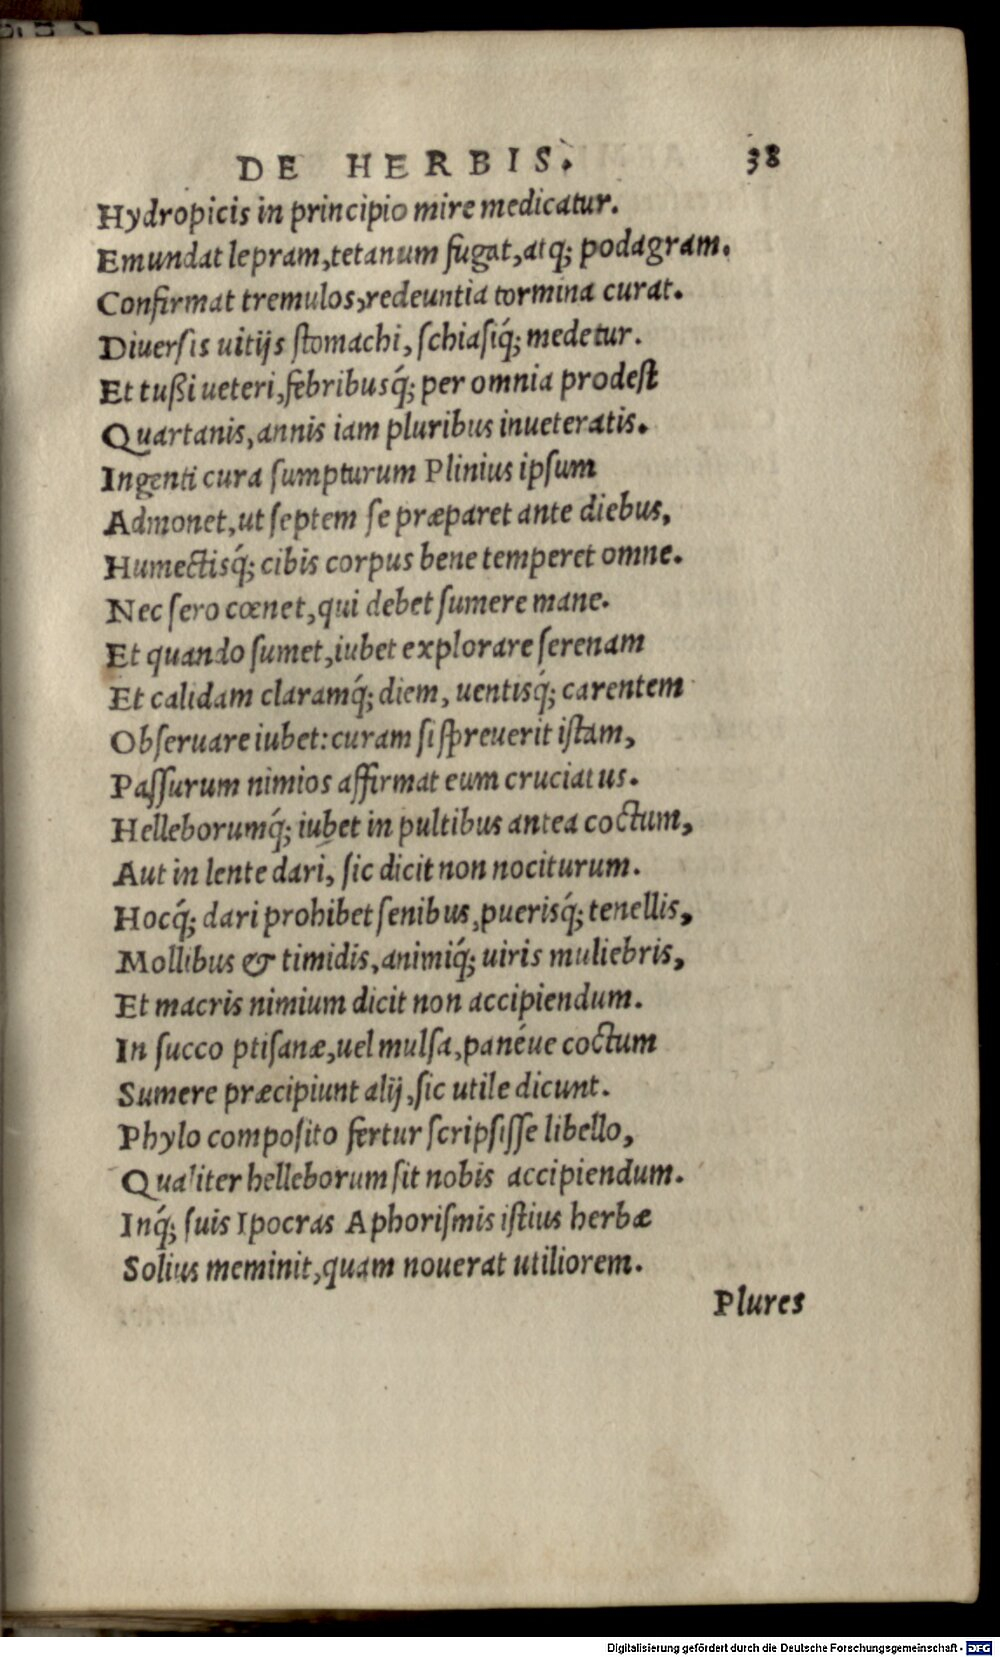 DE HERBIS. 38
Hydropicis in principio mire medicatur.
Emundat lepram, tetanum fugat, atq; podagram.
Confirmat tremulos, redeuntia tormina curat.
Diuerſis uitijs ſtomachi, ſchiaſiq́; medetur.
Et tußi ueteri, febribusq́; per omnia prodeſt
Quartanis, annis iam pluribus inueteratis.
Ingenti cura ſumpturum Plinius ipſum
Admonet, ut ſeptem ſe præparet ante diebus,
Humectisq́; cibis corpus bene temperet omne.
Nec ſero cœnet, qui debet ſumere mane.
Et quando ſumet, iubet explorare ſerenam
Et calidam claramq́; diem, uentisq́; carentem
Obſeruare iubet: curam ſi ſpreuerit iſtam,
Paſſurum nimios affirmat eum cruciatus.
Helleborumq́; iubet in pultibus antea coctum,
Aut in lente dari, ſic dicit non nociturum.
Hocq́; dari prohibet ſenibus, puerisq́; tenellis,
Mollibus & timidis, animiq́; uiris muliebris,
Et macris nimium dicit non accipiendum.
In ſucco ptiſanæ, uel mulſa, panéue coctum
Sumere præcipiunt alij, ſic utile dicunt.
Phylo compoſito fertur ſcripſiſſe libello,
Qualiter helleborum ſit nobis accipiendum.
Inq́; ſuis Ipocras Aphoriſmis iſtius herbæ
Solius meminit, quam nouerat utiliorem.
Plures
Digitalisierung gefördert durch die Deutsche Forschungsgemeinschaft - DFG